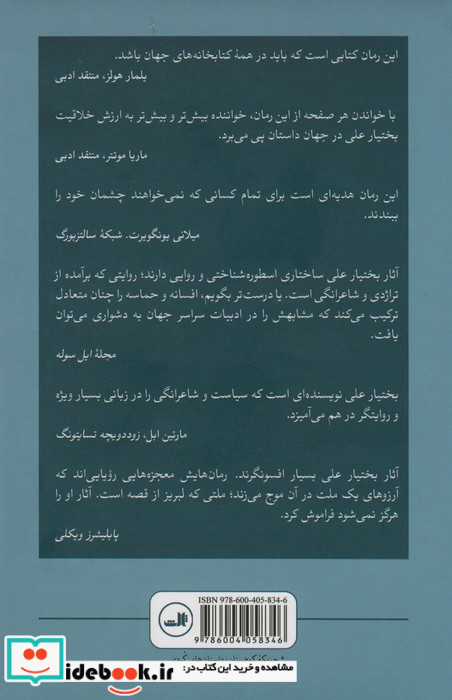 این رمان کتابی است که باید در همهٔ کتابخانه‌های جهان باشد.
یلمار هولز، منتقد ادبی
با خواندن هر صفحه از این رمان، خواننده بیش‌تر و بیش‌تر به ارزش خلاقیت
بختیار علی در جهان داستان پی می‌برد.
ماریا مونتر، منتقد ادبی
این رمان هدیه‌ای است برای تمام کسانی که نمی‌خواهند چشمان خود را
ببندند.
میلانی یونگویرت. شبکهٔ سالتزبورگ
آثار بختیار علی ساختاری اسطوره‌شناختی و روایی دارند؛ روایتی که برآمده از
تراژدی و شاعرانگی است. یا درست‌تر بگویم، افسانه و حماسه را چنان متعادل
ترکیب می‌کند که مشابهش را در ادبیات سراسر جهان به دشواری می‌توان
یافت.
مجلهٔ ابل سوله
بختیار علی نویسنده‌ای است که سیاست و شاعرانگی را در زبانی بسیار ویژه
و روایتگر در هم می‌آمیزد.
مارتین ابل، زوددویچه تسایتونگ
آثار بختیار علی بسیار افسونگرند. رمان‌هایش معجزه‌هایی رؤیایی‌اند که
آرزوهای یک ملت در آن موج می‌زند؛ ملتی که لبریز از قصه است. آثار او را
هرگز نمی‌شود فراموش کرد.
پابلیشرز ویکلی
ISBN 978-600-405-834-6
9 786004 058346
ثالث
مشاهده و خرید این کتاب در:
idebook.ir